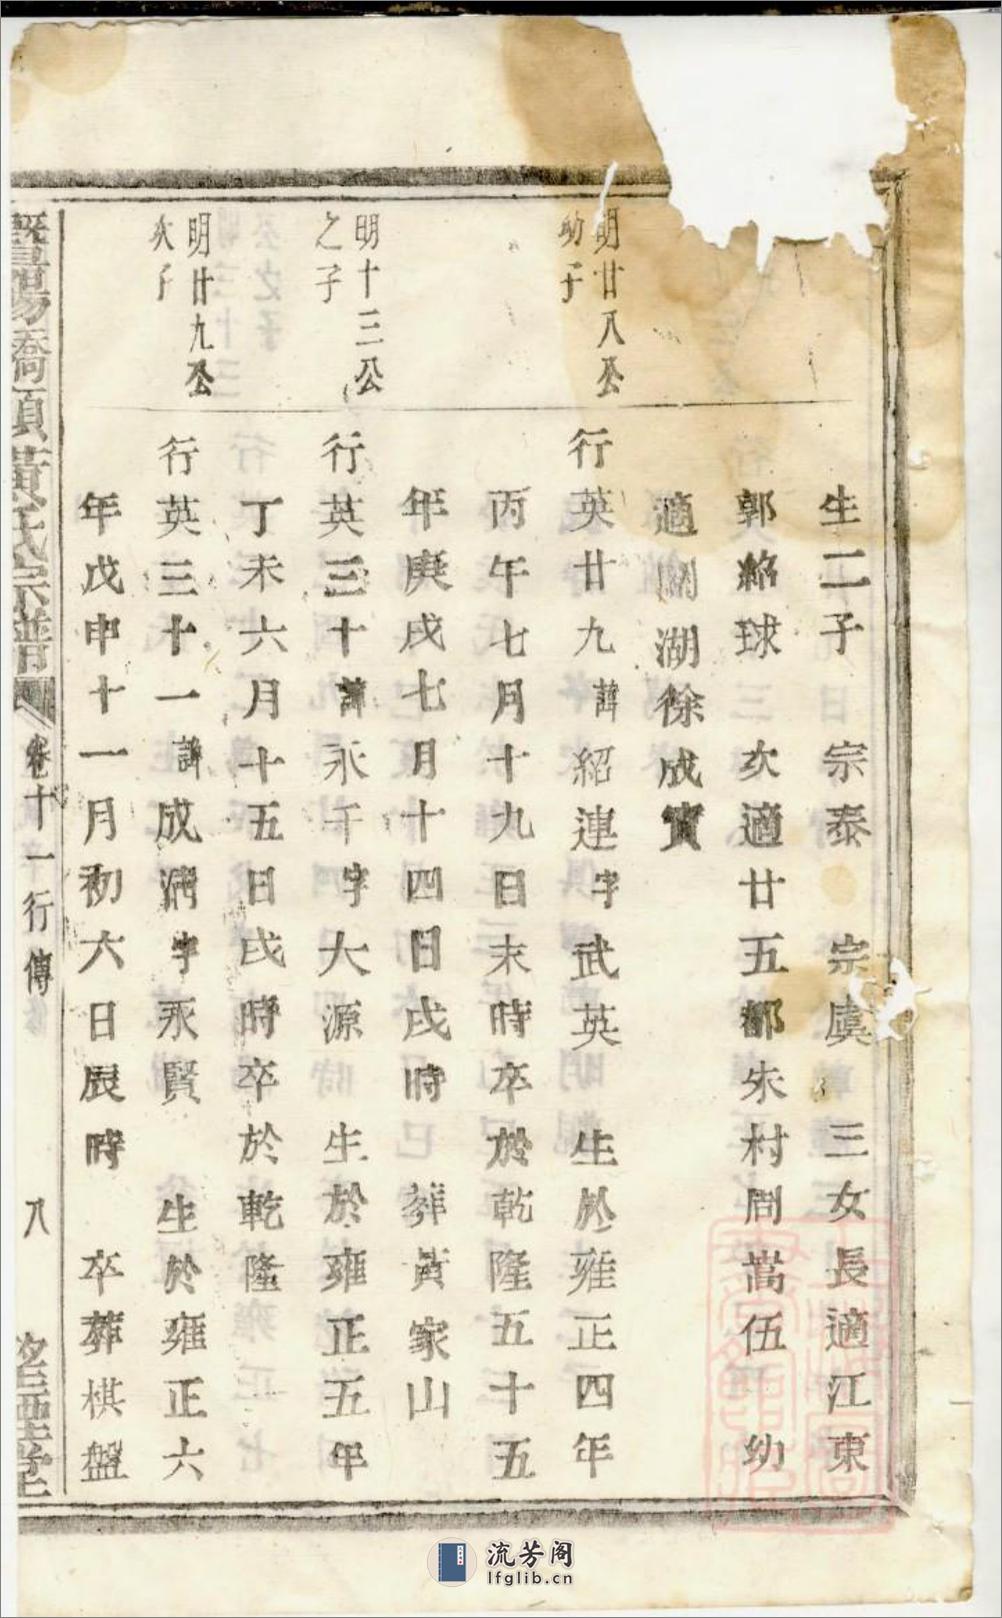 生二子 宗泰 宗虞 三女長適江東
郭紹球 三次適廿五都朱村問嵩伍 幼
適湖徐成實
明廿八公
幼子
行英廿九諱紹連字武英 生於雍正四年
丙午七月十九日未時卒於乾隆五十五
年庚戌七月十四日戌時 葬黃家山
明十三公
之子
行英三十諱永干字大源 生於雍正五年
丁未六月十五日戌時卒於乾隆
明廿九公
次子
行英三十一諱成滿字永賢 生於雍正六
年戊申十一月初六日辰時 卒葬棋盤
暨陽喬頭黃氏宗譜 卷十一行傳 八 堂
流芳阁
lfglib.cn